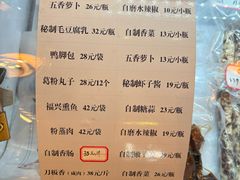 五香萝卜 26元/瓶 自磨水辣椒 10元/小瓶
秘制毛豆腐乳 32元/瓶 自制香菜 13元/小瓶
鸭脚包 28元/袋 五香萝卜 13元/小瓶
葛粉丸子 28元/12个 秘制虾子酱 19元/瓶
福兴熏鱼 42元/袋 自制糖蒜 23元/瓶
粉蒸肉 42元/袋 自磨水辣椒 19元/瓶
自制香肠 19元/瓶
刀板香（咸肉）38元/斤 自制香菜 26元/瓶